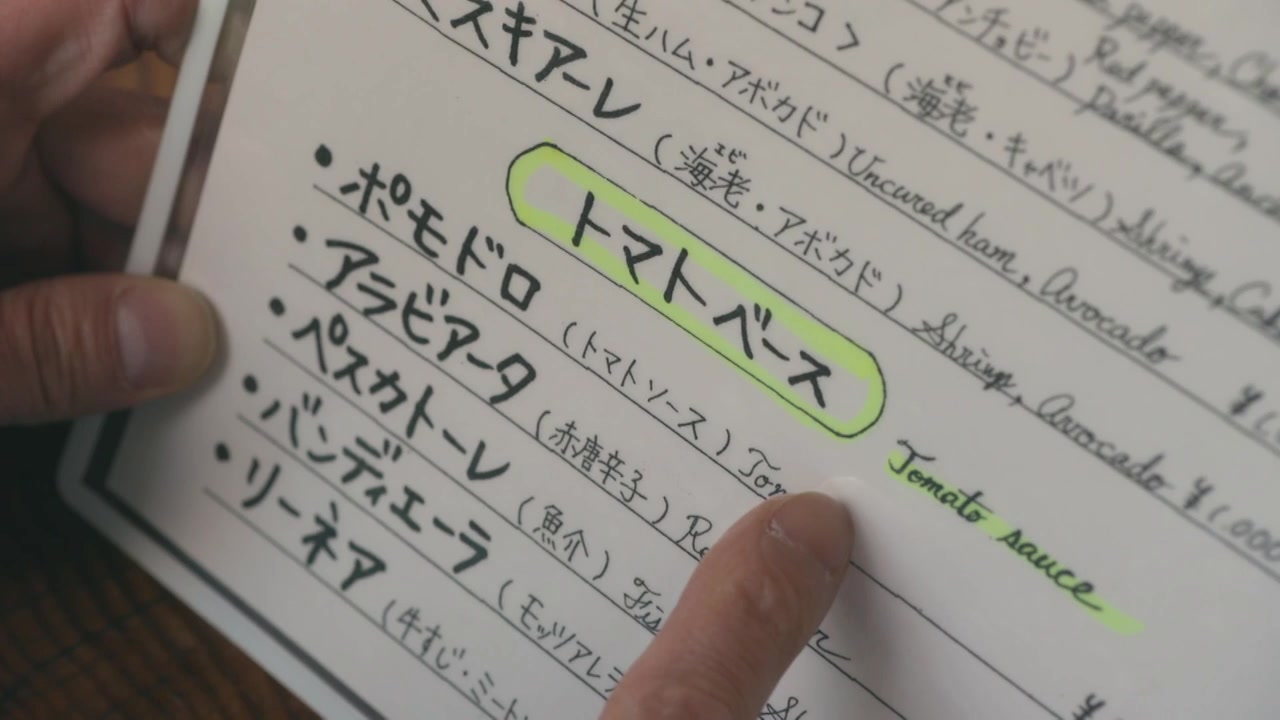 Red pepper,
アンチョビー)
(海老・キャベツ) Shrimp,
エビ
(生ハム・アボカド) Uncured ham, Avocado
スキアーレ (海老・アボカド) Shrimp, Avocado ¥1,000
エビ
トマトベース Tomato sauce
・ポモドロ (トマトソース)
・アラビアータ (赤唐辛子)
・ペスカトーレ (魚介)
・バンディエーラ (モッツアレラ
・リーネア (牛すじ・ミート